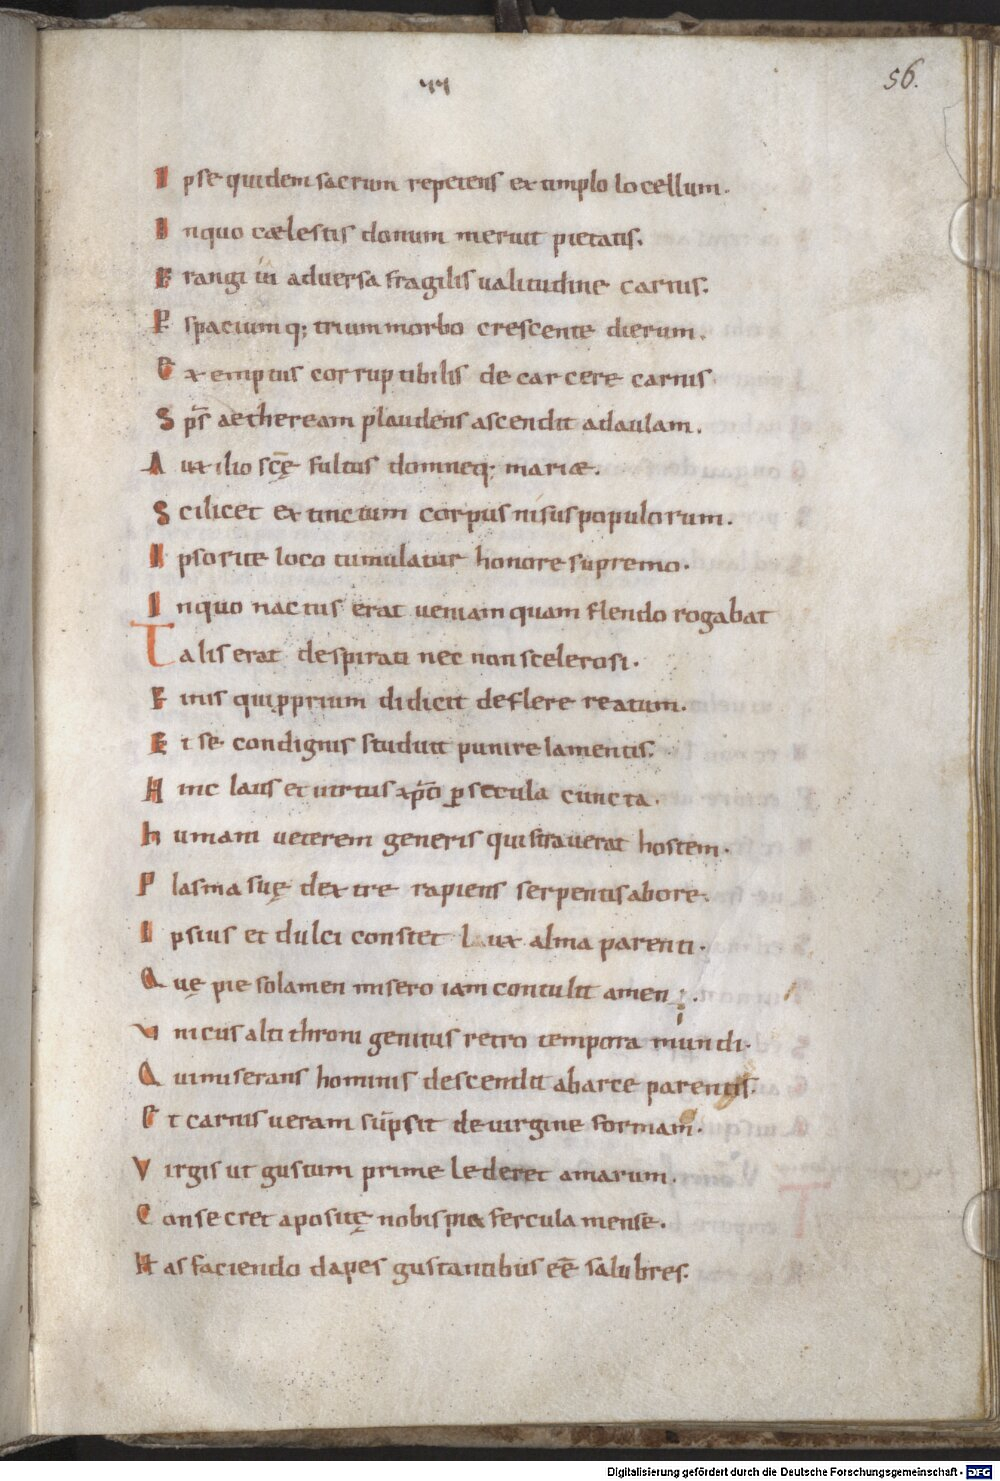 56.
I pse quidem sacrum repetens extimplo locellum.
I nquo cælestis donum meruit pietatis.
F rangi in adversa fragilis ualitudine carnis.
P spacium q; trium morbo crescente dierum.
E xemptus corruptibilis de carcere carnis
S pr̄s aetheream plaudens ascendit adaulam.
A uxilio sc̄ę fultus domneq; mariæ.
S cilicet extinctum corpus nisus populorum.
I pso rite loco tumulatur honore supremo.
I nquo nactus erat ueniam quam flendo rogabat
T alis erat desperati nec non scelerosi.
F inis qui pprium didicit deflere reatum.
E t se condignis studuit punire lamentis.
H inc laus et uirtus xp̄o p secula cuncta.
h umani ueterem generis qui strauerat hostem.
P lasma suę dextre rapiens serpentis abore.
I psius et dulci constet laux alma parenti.
Q uę pie solamen misero iam contulit amen.
V nicus alti throni genitus retro tempora mundi.
Q ui miserans hominis descendit abarce parentis.
E t carnis ueram sūpsit de uirgine formam.
V irgis ut gustum prime lederet amarum.
C onsecret apositę nobis pia fercula mense.
H as faciendo dapes gustantibus eē salubres.
Digitalisierung gefördert durch die Deutsche Forschungsgemeinschaft - DFG